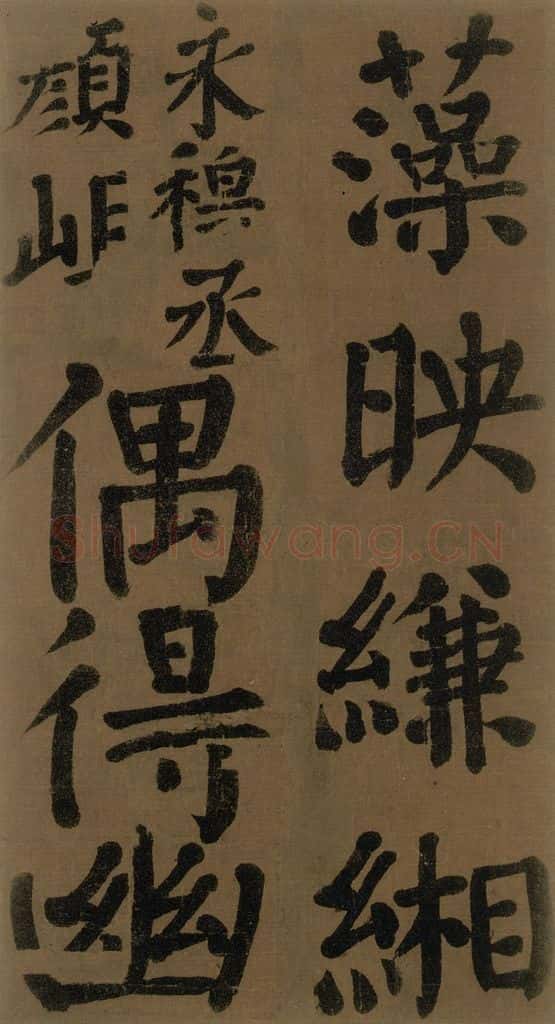 藻映縑緗
永穆丞
偶得幽
Shufawang.CN